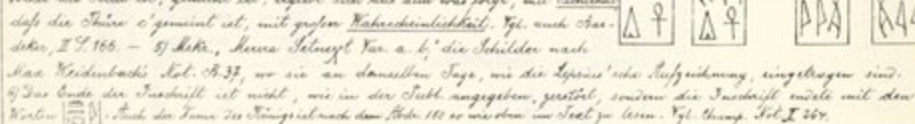 daß die Thüre c gemeint ist, mit großer Wahrscheinlichkeit. Vgl. auch Bae-
deker, II S. 166. — 5) Mskr., Var. a. b; die Schilder nach
Max Weidenbach's Not. B. 37, wo sie an demselben Tage, wie die Lepsius'sche Aufzeichnung, eingetragen sind.
6) Das Ende der Inschrift ist nicht, wie in der Publ. angegeben, zerstört, sondern die Inschrift endete mit den
Worten . Auch der Name des Königs ist nach dem so wie oben im Text zu lesen. Vgl. Champ. Not. I 264.